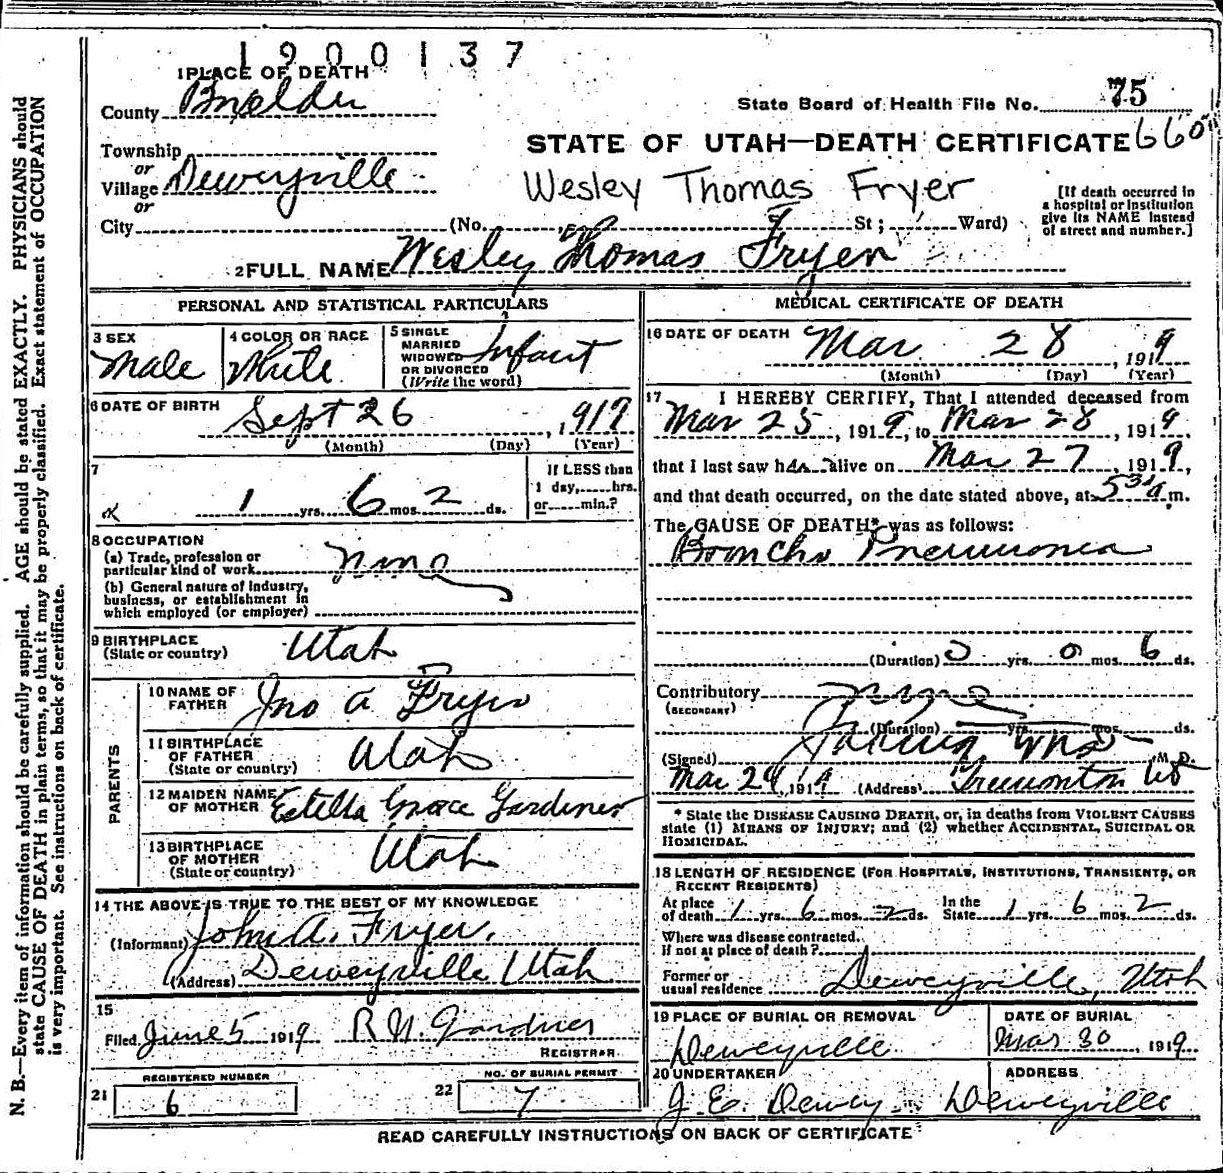 1900137
1 PLACE OF DEATH
County Boxelder
State Board of Health File No. 75
STATE OF UTAH—DEATH CERTIFICATE 660
Township
or
Village Deweyville
or
City (No. St; Ward)
Wesley Thomas Fryer
[If death occurred in
a hospital or institution
give its NAME instead
of street and number.]
2 FULL NAME Wesley Thomas Fryer
PERSONAL AND STATISTICAL PARTICULARS
3 SEX
Male
4 COLOR OR RACE
White
5 SINGLE
MARRIED
WIDOWED
OR DIVORCED
(Write the word)
Infant
6 DATE OF BIRTH Sept 26, 1917
(Month) (Day) (Year)
7
1 yrs. 6 mos. 2 ds.
If LESS than
1 day, hrs.
or min.?
8 OCCUPATION
(a) Trade, profession or
particular kind of work none
(b) General nature of industry,
business, or establishment in
which employed (or employer)
9 BIRTHPLACE
(State or country) Utah
PARENTS
10 NAME OF
FATHER Jno A Fryer
11 BIRTHPLACE
OF FATHER
(State or country) Utah
12 MAIDEN NAME
OF MOTHER Estella Grace Gardner
13 BIRTHPLACE
OF MOTHER
(State or country) Utah
14 THE ABOVE IS TRUE TO THE BEST OF MY KNOWLEDGE
(Informant) John A. Fryer.
(Address) Deweyville Utah
15
Filed June 5 1919 Gardner
REGISTRAR
REGISTERED NUMBER
21 6
NO. OF BURIAL PERMIT
22 7
MEDICAL CERTIFICATE OF DEATH
16 DATE OF DEATH Mar 28, 1919
(Month) (Day) (Year)
17 I HEREBY CERTIFY, That I attended deceased from
Mar 25, 1919, to Mar 28, 1919
that I last saw h alive on Mar 27, 1919,
and that death occurred, on the date stated above, at 5 30 a m.
The CAUSE OF DEATH* was as follows:
Broncho Pneumonia
(Duration) 0 yrs. 0 mos. 6 ds.
Contributory none
(SECONDARY)
(Duration) yrs. mos. ds.
(Signed) M. D.
Mar 29, 1919 (Address) Tremonton Ut
* State the DISEASE CAUSING DEATH, or, in deaths from VIOLENT CAUSES
state (1) MEANS OF INJURY; and (2) whether ACCIDENTAL, SUICIDAL OR
HOMICIDAL.
18 LENGTH OF RESIDENCE (FOR HOSPITALS, INSTITUTIONS, TRANSIENTS, OR
RECENT RESIDENTS)
At place
of death 1 yrs. 6 mos. 2 ds.
In the
State 1 yrs. 6 mos. 2 ds.
Where was disease contracted.
If not at place of death?
Former or
usual residence Deweyville, Utah
19 PLACE OF BURIAL OR REMOVAL
Deweyville
DATE OF BURIAL
Mar 30, 1919
20 UNDERTAKER
J. E. Dewey
ADDRESS
Deweyville
READ CAREFULLY INSTRUCTIONS ON BACK OF CERTIFICATE
N. B.—Every item of information should be carefully supplied. AGE should be stated EXACTLY. PHYSICIANS should
state CAUSE OF DEATH in plain terms, so that it may be properly classified. Exact statement of OCCUPATION
is very important. See instructions on back of certificate.